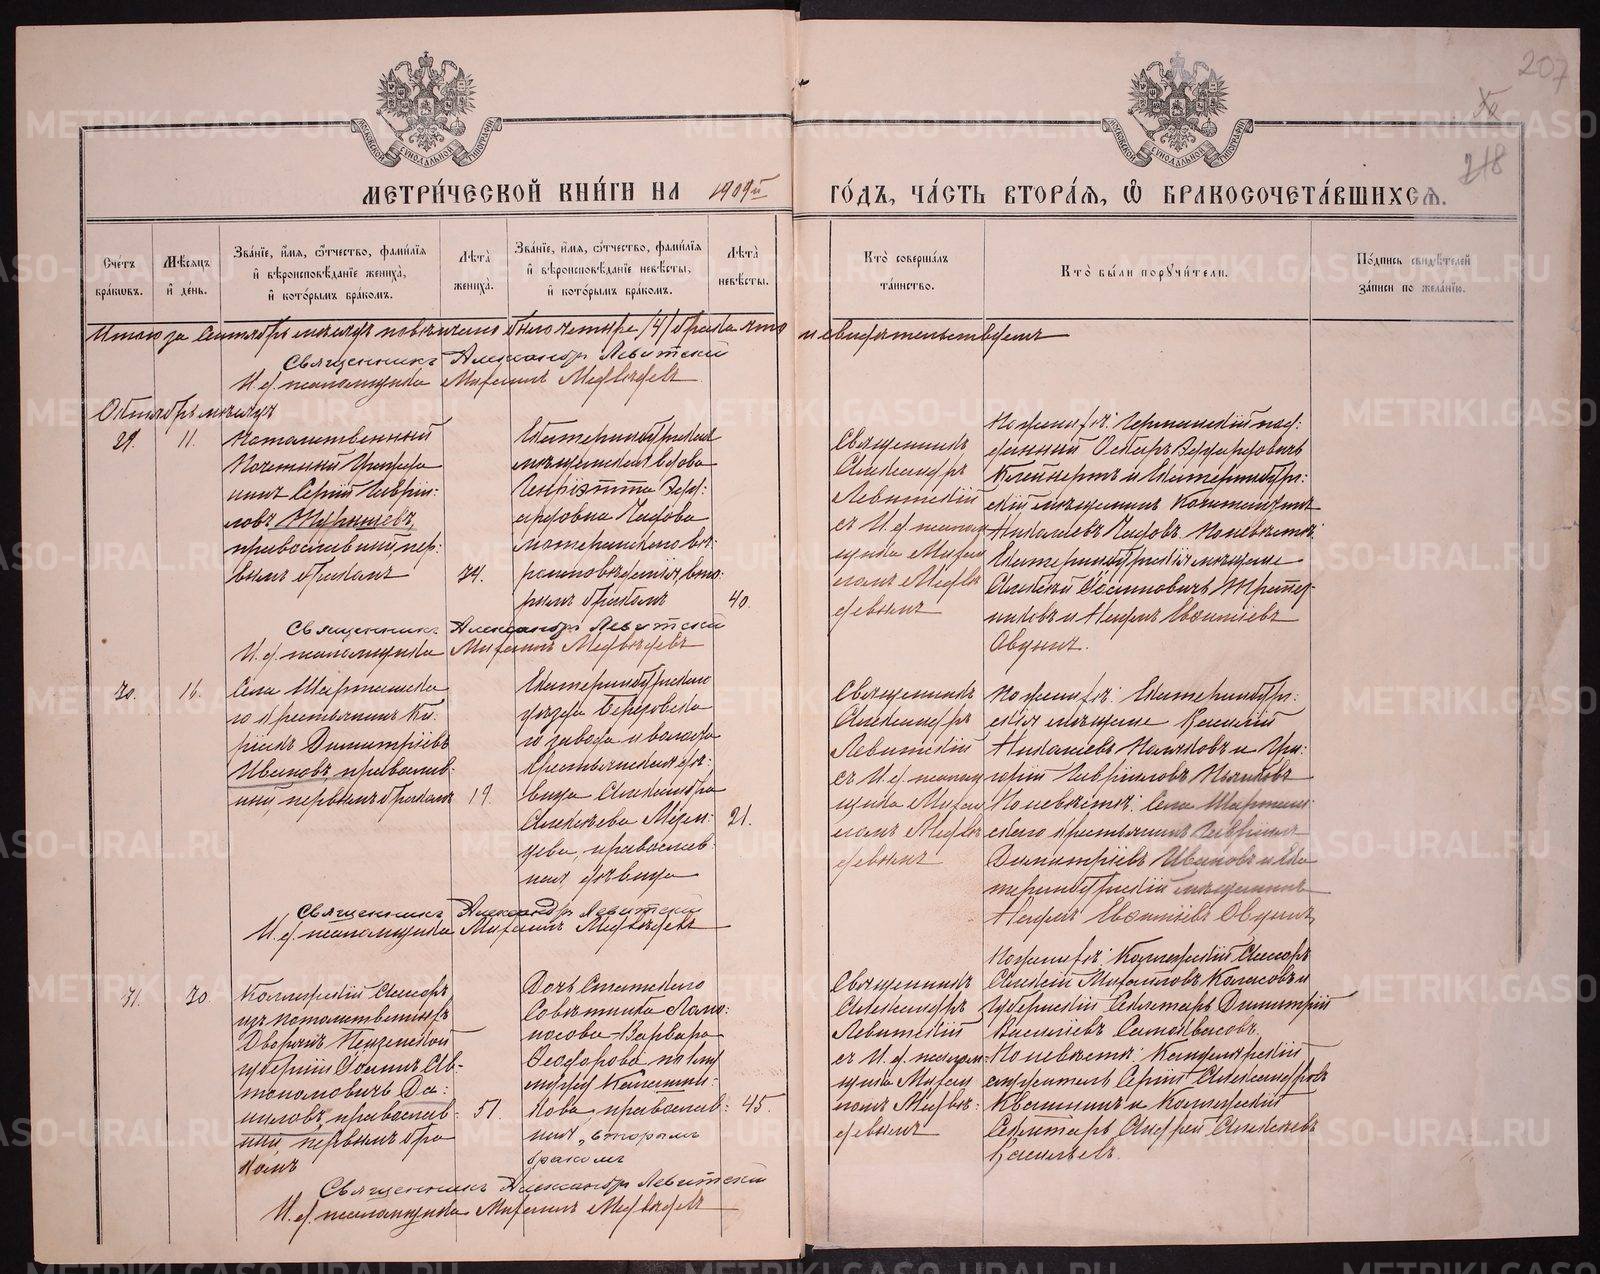 207
218
МЕТРИ́ЧЕСКОЙ КНИ́ГИ НА 1909й ГО́ДЪ, ЧА́СТЬ ВТОРА́Я, Ѡ БРАКОСОЧЕТА́ВШИХСЯ.
Сче́тъ бра́кѡвъ.
Мѣ́сяцъ и҆ де́нь.
Зва́нїе, и҆́мя, ѻ҆́тчество, фами́лїя и҆ вѣроисповѣ́данїе жениха̀, и҆ кото́рымъ бра́комъ.
Лѣ́та жениха̀.
Зва́нїе, и҆́мя, ѻ҆́тчество, фами́лїя и҆ вѣроисповѣ́данїе невѣ́сты, и҆ кото́рымъ бра́комъ.
Лѣ́та невѣ́сты.
Кто̀ соверша́лъ та́инство.
Кто̀ бы́ли порꙋчи́тели.
По́дпись свидѣ́телей за́писи по жела́нїю.
Итого за Сентябрь месяцъ повенчано было четыре /4/ брака что и свидетельствуемъ
Священникъ Александръ Левитский
И.д. псаломщика Михаилъ Медведевъ
Октябрь месяцъ
29.
11.
Потомственный
Почетный Гражда
нинъ Сергий Гаврии-
ловъ
православный пер:
вымъ бракомъ
34.
Екатеринбургская
мещанская вдова
Генріэтта Эду:
ардовна Чадова
лютеранского ве:
роисповедания, вто:
рымъ бракомъ
40.
Священникъ
Александръ
Левитский
съ И.д. псалом
щика Михаи
ломъ Медве
девымъ
По женихе: Германский под:
данный Оскаръ Эдуардовичъ
Клейнертъ и Екатеринбург:
ский мещанинъ Константинъ
Николаевъ Чадовъ. По невесте:
Екатеринбургские мещане
Алексей Осиповичъ
и Андрей
Священникъ Александръ Левитский
И.д. псаломщика Михаилъ Медведевъ
30.
16.
Села Шарташска
го крестьянинъ Ки:
рикъ Димитріевъ
Ивановъ, православ:
ный, первымъ бракомъ
19.
Екатеринбургского
уезда Березовска
го завода и волости
крестьянская де:
вица Александра
Алексеева
православ:
ная девица
21.
Священникъ
Александръ
Левитский
съ И.д. псалом
щика Михаи
ломъ Медве
девымъ
По женихе: Екатеринбург:
ские мещане
Николаевъ и Гри:
горий Гавриловъ
По невесте: Села Шарташ:
ского крестьянинъ Гавриилъ
Димитріевъ Ивановъ и Ека
теринбургский мещанинъ
Священникъ Александръ Левитский
И.д. псаломщика Михаилъ Медведевъ
31.
30.
Коллежский Асесоръ
изъ потомственныхъ
Дворянъ Пензенской
губернии Іоаннъ Ав-
тономовичъ Да:
ниловъ, православ:
ный, первымъ бра
комъ
51.
Дочь Статского
Советника
Варвара
Феодорова по
мужу
православ:
ная, вторымъ
бракомъ
45.
Священникъ
Александръ
Левитский
съ И.д. псалом-
щика Михаи
ломъ Медве:
девымъ
По женихе: Коллежский Асесоръ
Алексей Михайловъ и
Губернский Секретарь Димитрий
Васильевъ Самойловъ.
По невесте: Канцелярский
служитель Сергий Александровъ
и Коллежский
Секретарь Андрей Алексеевъ
Священникъ Александръ Левитский
И.д. псаломщика Михаилъ Медведевъ